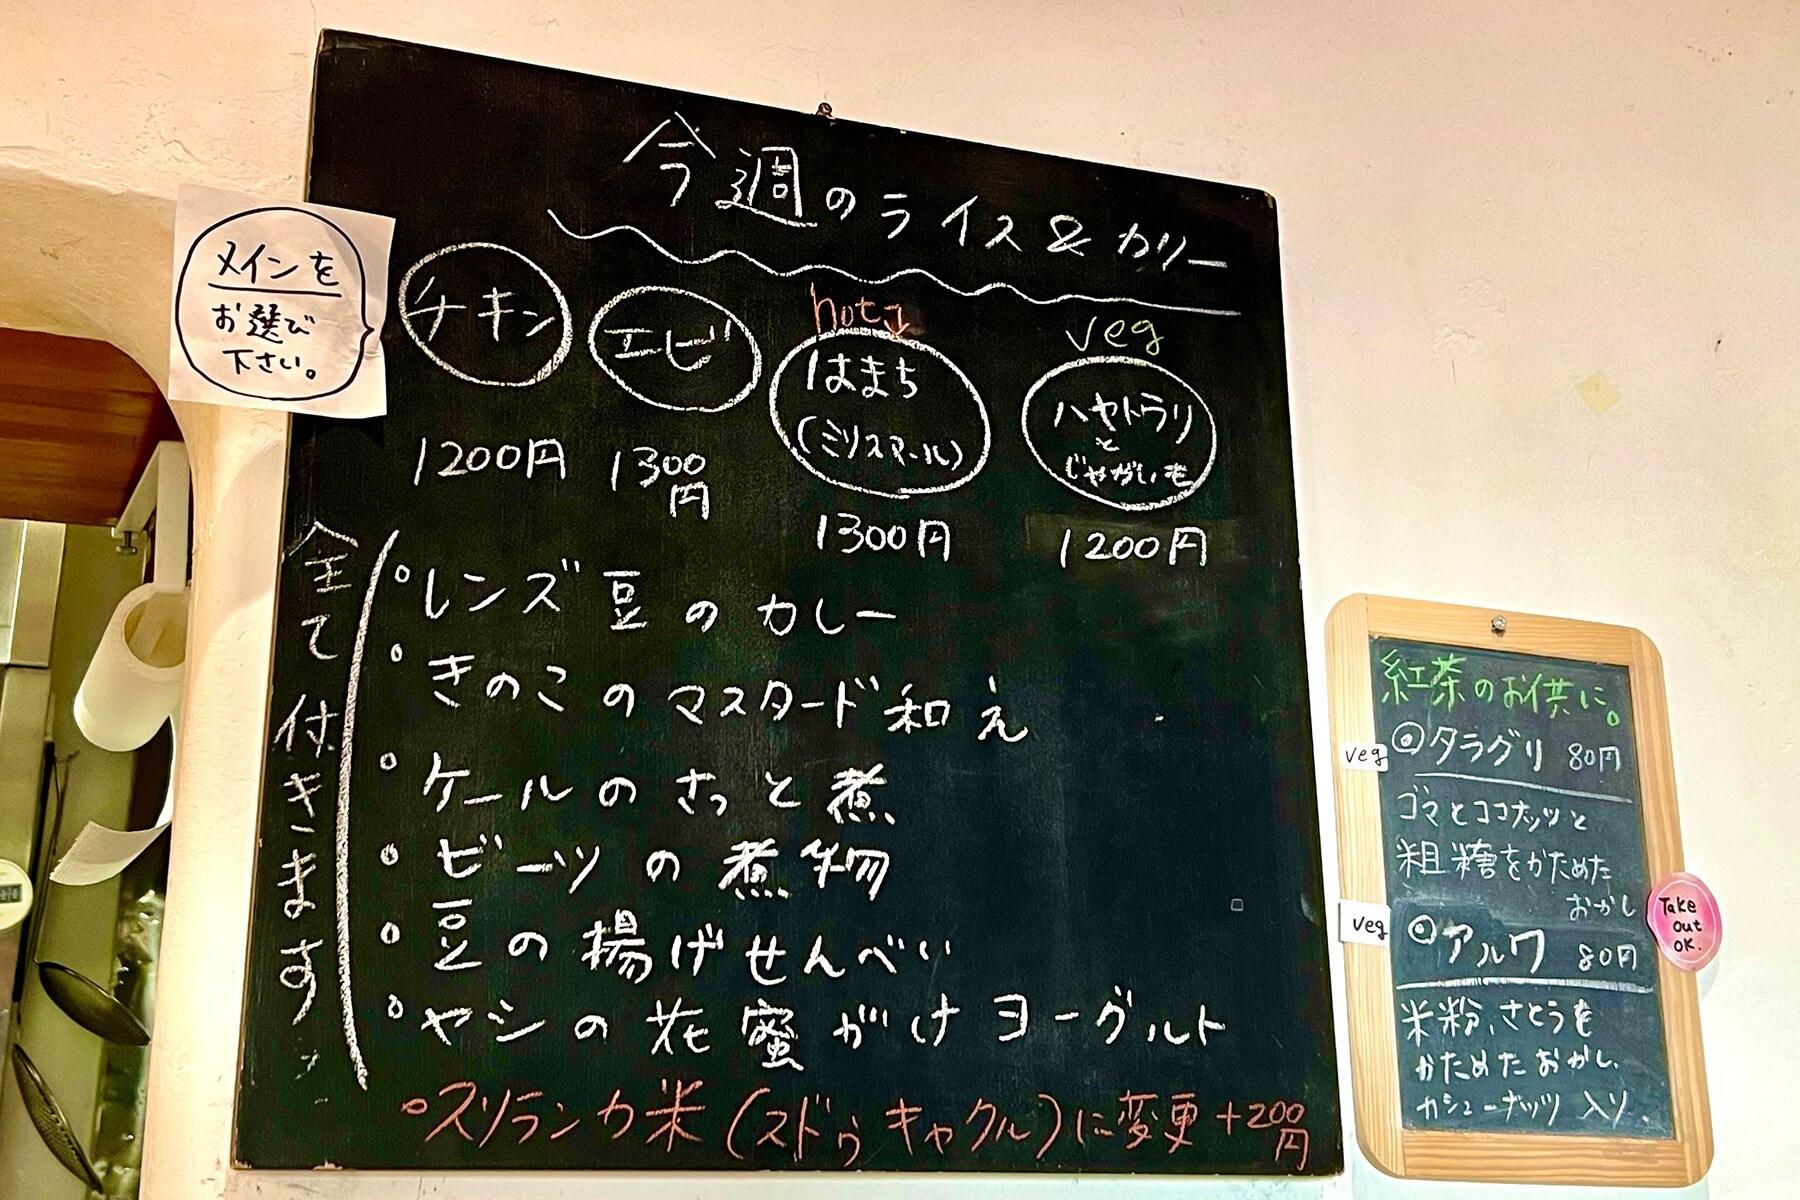 今週のライス&カリー
メインを
お選び
下さい。
チキン
1200円
エビ
1300
円
hot↓
はまち
(ミリスマール)
1300円
veg
ハヤトウリ
と
じゃがいも
1200円
全て付きます
。レンズ豆のカレー
。きのこのマスタード和え
。ケールのさっと煮
。ビーツの煮物
。豆の揚げせんべい
。ヤシの花蜜がけヨーグルト
。スリランカ米(スドゥキャクル)に変更+200
円
紅茶のお供に。
veg
◎タラグリ 80円
ゴマとココナッツと
粗糖をかためた
おかし
veg
◎アルワ 80円
米粉、さとうを
かためたおかし、
カシューナッツ入り
Take
out
OK.